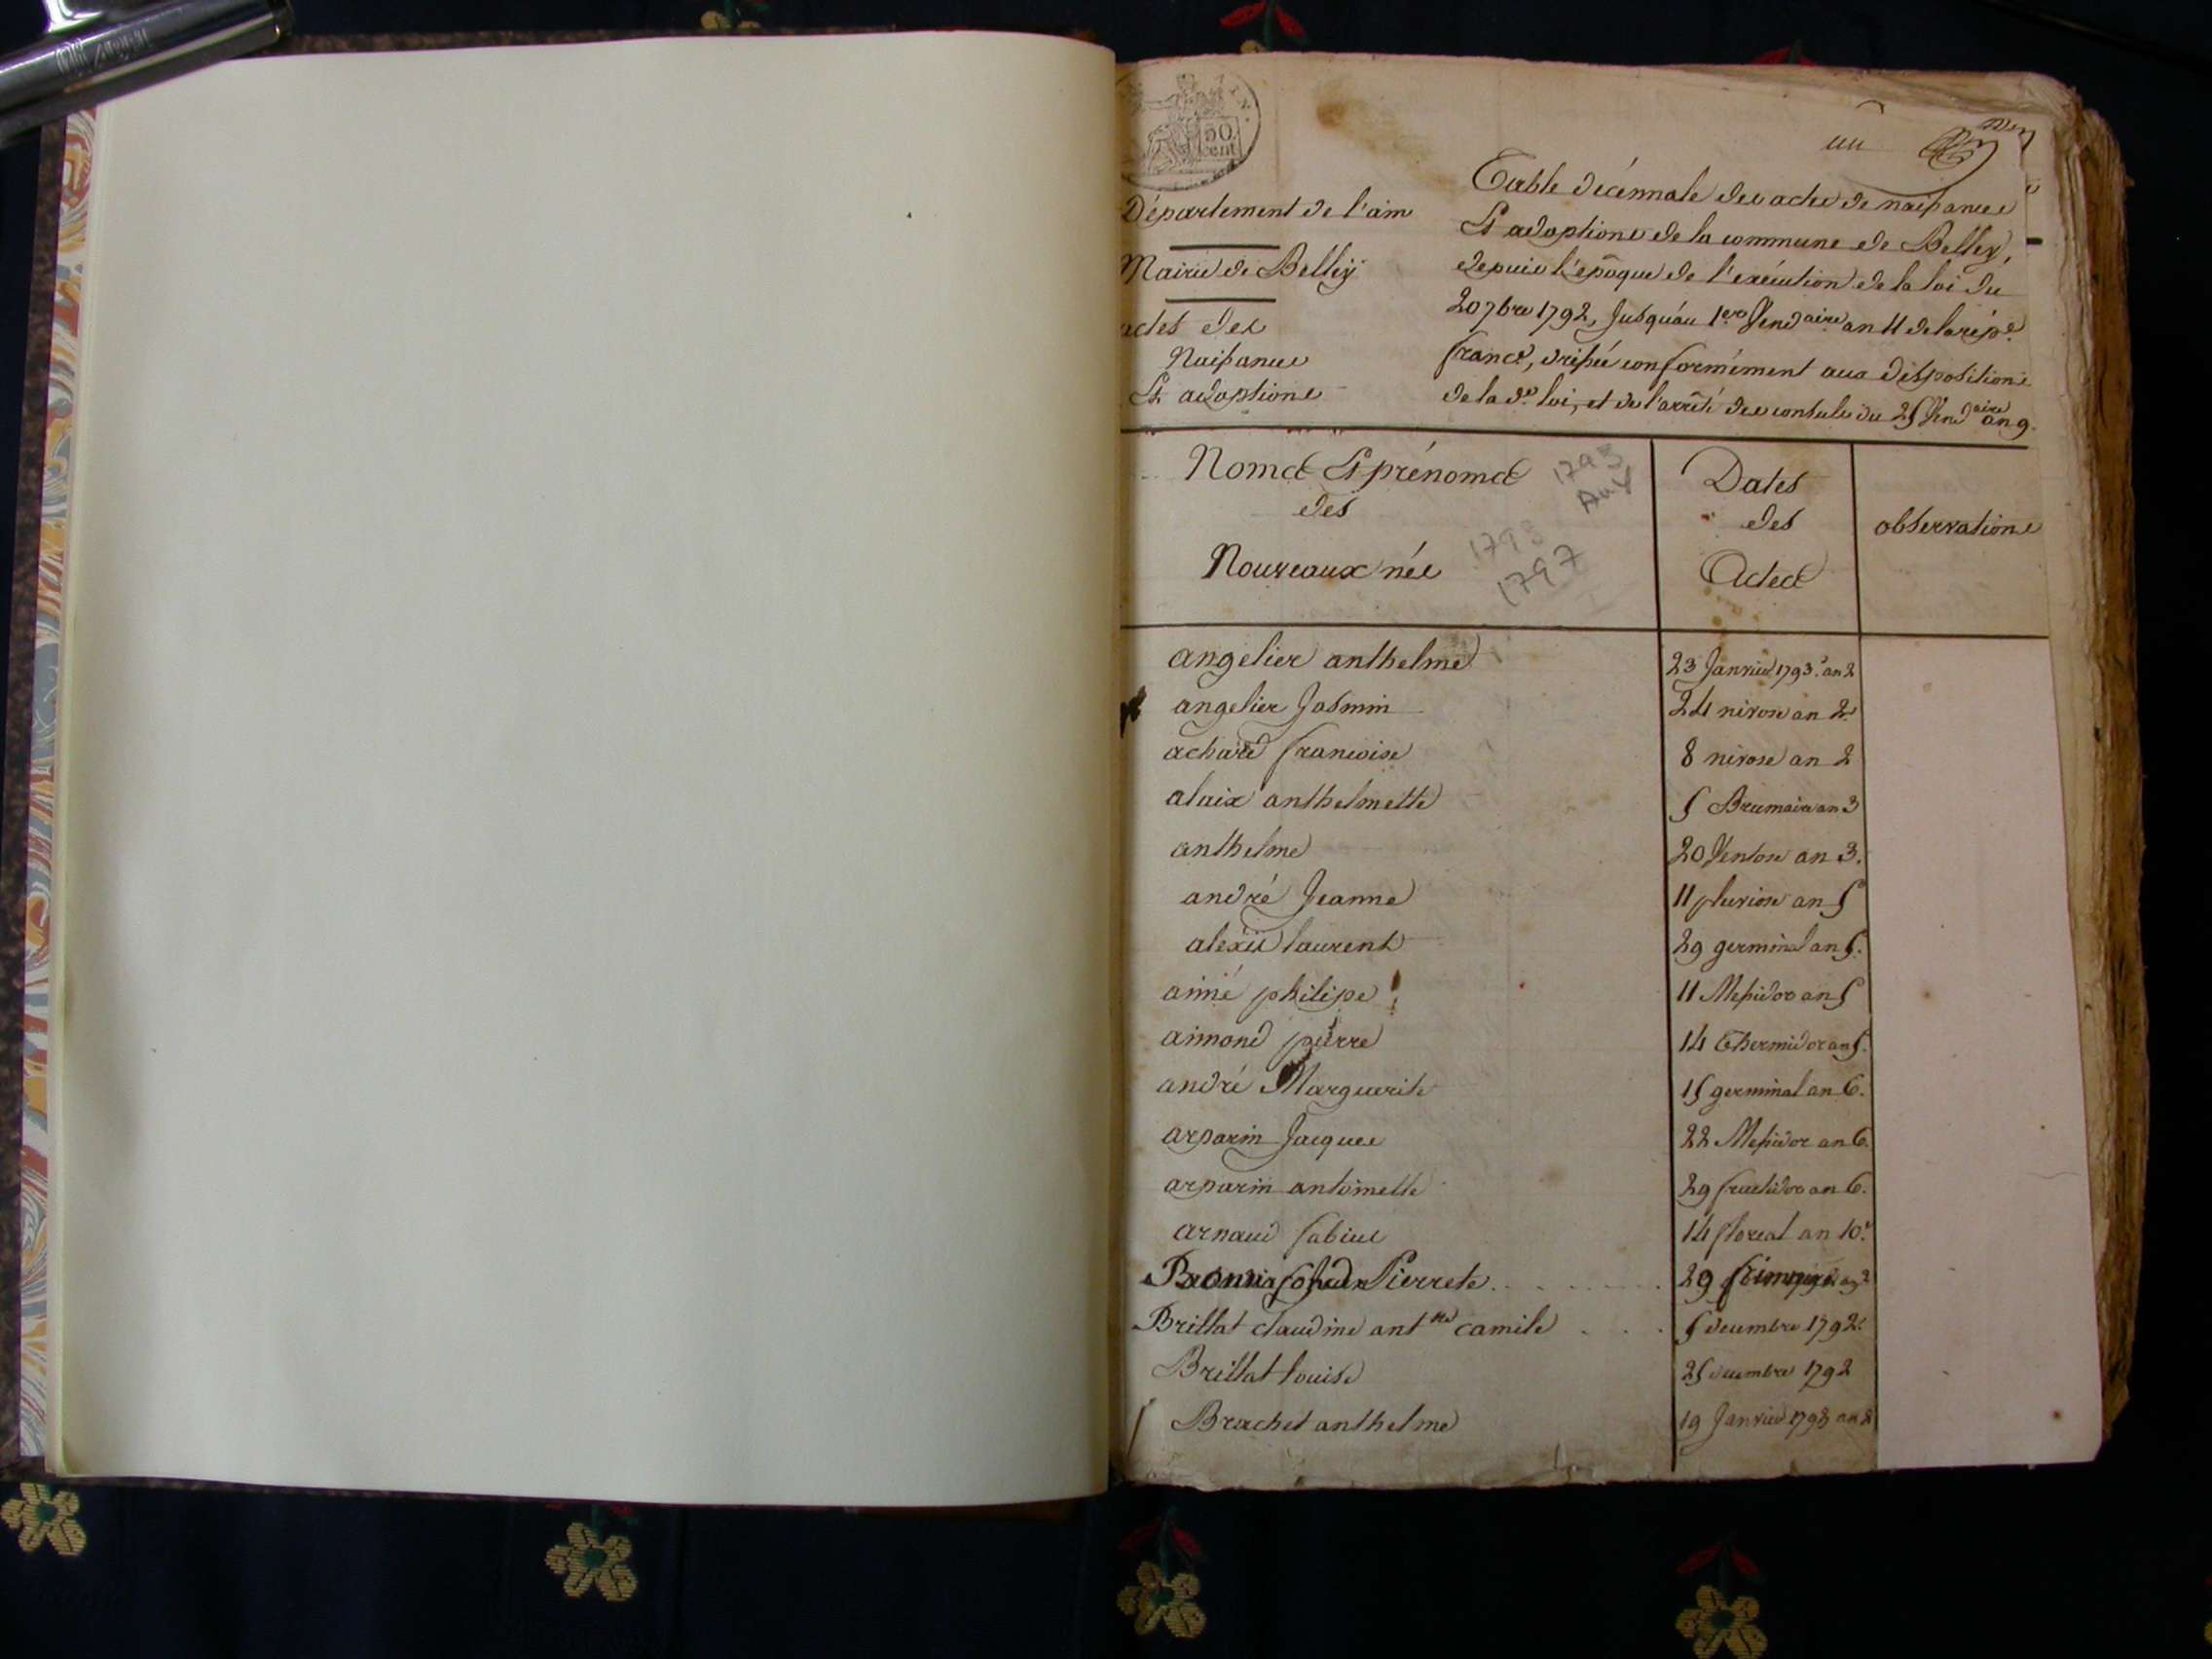 50
cent
un
Département de l'ain
Mairie de Belley
actes des
Naissances
Et adoptions
Table décennale des actes de naissances
Et adoptions de la commune de Belley,
depuis l'epoque de l'exécution de la loi du
20 7bre 1792, Jusqu'au 1er Vendaire an 11 de la rép.e
franc.e, dressée conformément aux dispositions
de la d.e loi, et de l'arrêté des consuls du 25 Vendaire an 9.
Noms Et prénoms
des
Nouveaux nés
1793
An 4
1793
1797
Dates
des
Actes
observations
angelier anthelme 23 Janvier 1793. an 2
angelier Jasmin 24 nivose an 2.
achard francoise 8 nivose an 2
alaix anthelmette 5 Brumaire an 3
anthelme 20 Ventose an 3.
andré Jeanne 11 pluviose an 5
alexis laurent 29 germinal an 5.
aimé philipe 11 Messidor an 5
aimond pierre 14 Thermidor an 5.
andré Marguerite 15 germinal an 6.
arparin Jacques 22 Messidor an 6.
arparin antoinette 29 fructidor an 6.
arnaud fabius 14 floreal an 10.
Pierrete 29 frimaire an 2
Brillat claudine ant.tte camile 5 decembre 1792.
Brillat louise 25 decembre 1792
Brachet anthelme 19 Janvier 1793 an 2